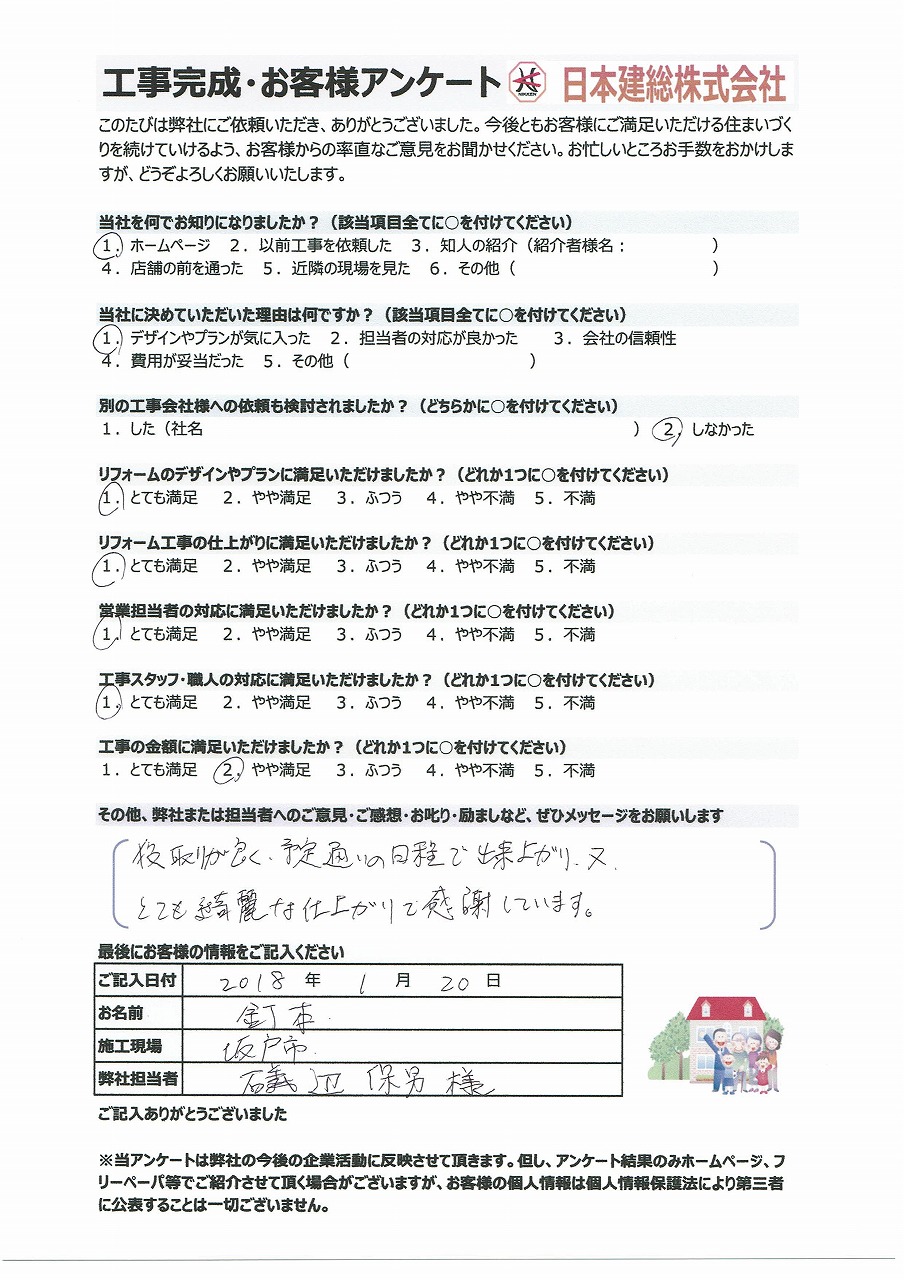 工事完成・お客様アンケート NIKKEN 日本建総株式会社
このたびは弊社にご依頼いただき、ありがとうございました。今後ともお客様にご満足いただける住まいづく
りを続けていけるよう、お客様からの率直なご意見をお聞かせください。お忙しいところお手数をおかけしま
すが、どうぞよろしくお願いいたします。
当社を何でお知りになりましたか？（該当項目全てに○を付けてください）
１．ホームページ　２．以前工事を依頼した　３．知人の紹介（紹介者様名：　　　　　）
４．店舗の前を通った　５．近隣の現場を見た　６．その他（　　　　　　　　　　　）
当社に決めていただいた理由は何ですか？（該当項目全てに○を付けてください）
１．デザインやプランが気に入った　２．担当者の対応が良かった　　３．会社の信頼性
４．費用が妥当だった　５．その他（　　　　　　　　　　）
別の工事会社様への依頼も検討されましたか？（どちらかに○を付けてください）
１．した（社名　　　　　　　　　　　　　　　　　　　　　　　）　２．しなかった
リフォームのデザインやプランに満足いただけましたか？（どれか1つに○を付けてください）
１．とても満足　２．やや満足　３．ふつう　４．やや不満　５．不満
リフォーム工事の仕上がりに満足いただけましたか？（どれか1つに○を付けてください）
１．とても満足　２．やや満足　３．ふつう　４．やや不満　５．不満
営業担当者の対応に満足いただけましたか？（どれか1つに○を付けてください）
１．とても満足　２．やや満足　３．ふつう　４．やや不満　５．不満
工事スタッフ・職人の対応に満足いただけましたか？（どれか1つに○を付けてください）
１．とても満足　２．やや満足　３．ふつう　４．やや不満　５．不満
工事の金額に満足いただけましたか？（どれか1つに○を付けてください）
１．とても満足　２．やや満足　３．ふつう　４．やや不満　５．不満
その他、弊社または担当者へのご意見・ご感想・お叱り・励ましなど、ぜひメッセージをお願いします
段取りが良く、予定通りの日程で出来上がり、又、
とても綺麗な仕上がりで感謝しています。
最後にお客様の情報をご記入ください
ご記入日付　2018 年　1 月　20 日
お名前　釘本
施工現場　坂戸市
弊社担当者　礒辺 保男 様
ご記入ありがとうございました
※当アンケートは弊社の今後の企業活動に反映させて頂きます。但し、アンケート結果のみホームページ、フ
リーペーパ等でご紹介させて頂く場合がございますが、お客様の個人情報は個人情報保護法により第三者
に公表することは一切ございません。